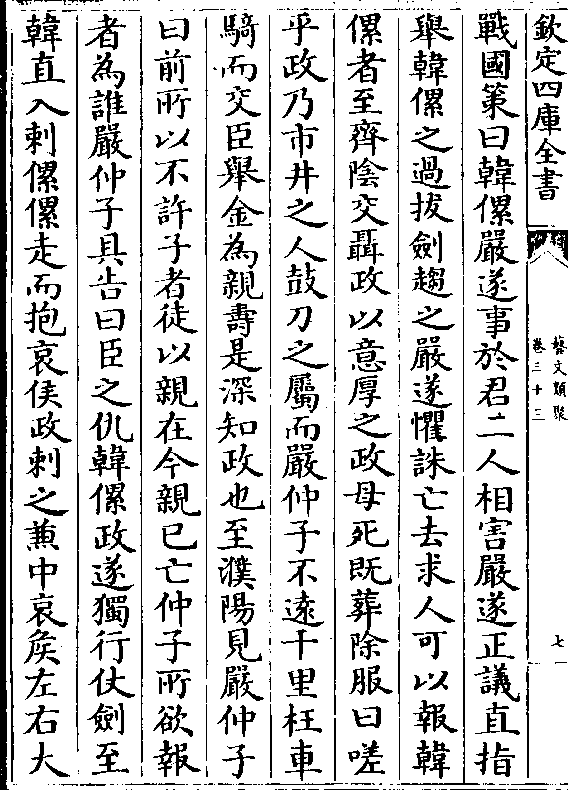 欽定四庫全書
藝文類聚
卷三十三
七
戰國策曰韓傫嚴遂事於君二人相害嚴遂正議直指
舉韓傫之過拔劍趨之嚴遂懼誅亡去求人可以報韓
傫者至齊陰交聶政以意厚之政母死既葬除服曰嗟
乎政乃市井之人鼓刀之屬而嚴仲子不遠千里枉車
騎而交臣舉金為親壽是深知政也至濮陽見嚴仲子
曰前所以不許子者徒以親在今親已亡仲子所欲報
者為誰嚴仲子具告曰臣之仇韓傫政遂獨行仗劍至
韓直入刺傫傫走而抱哀侯政刺之兼中哀侯左右大